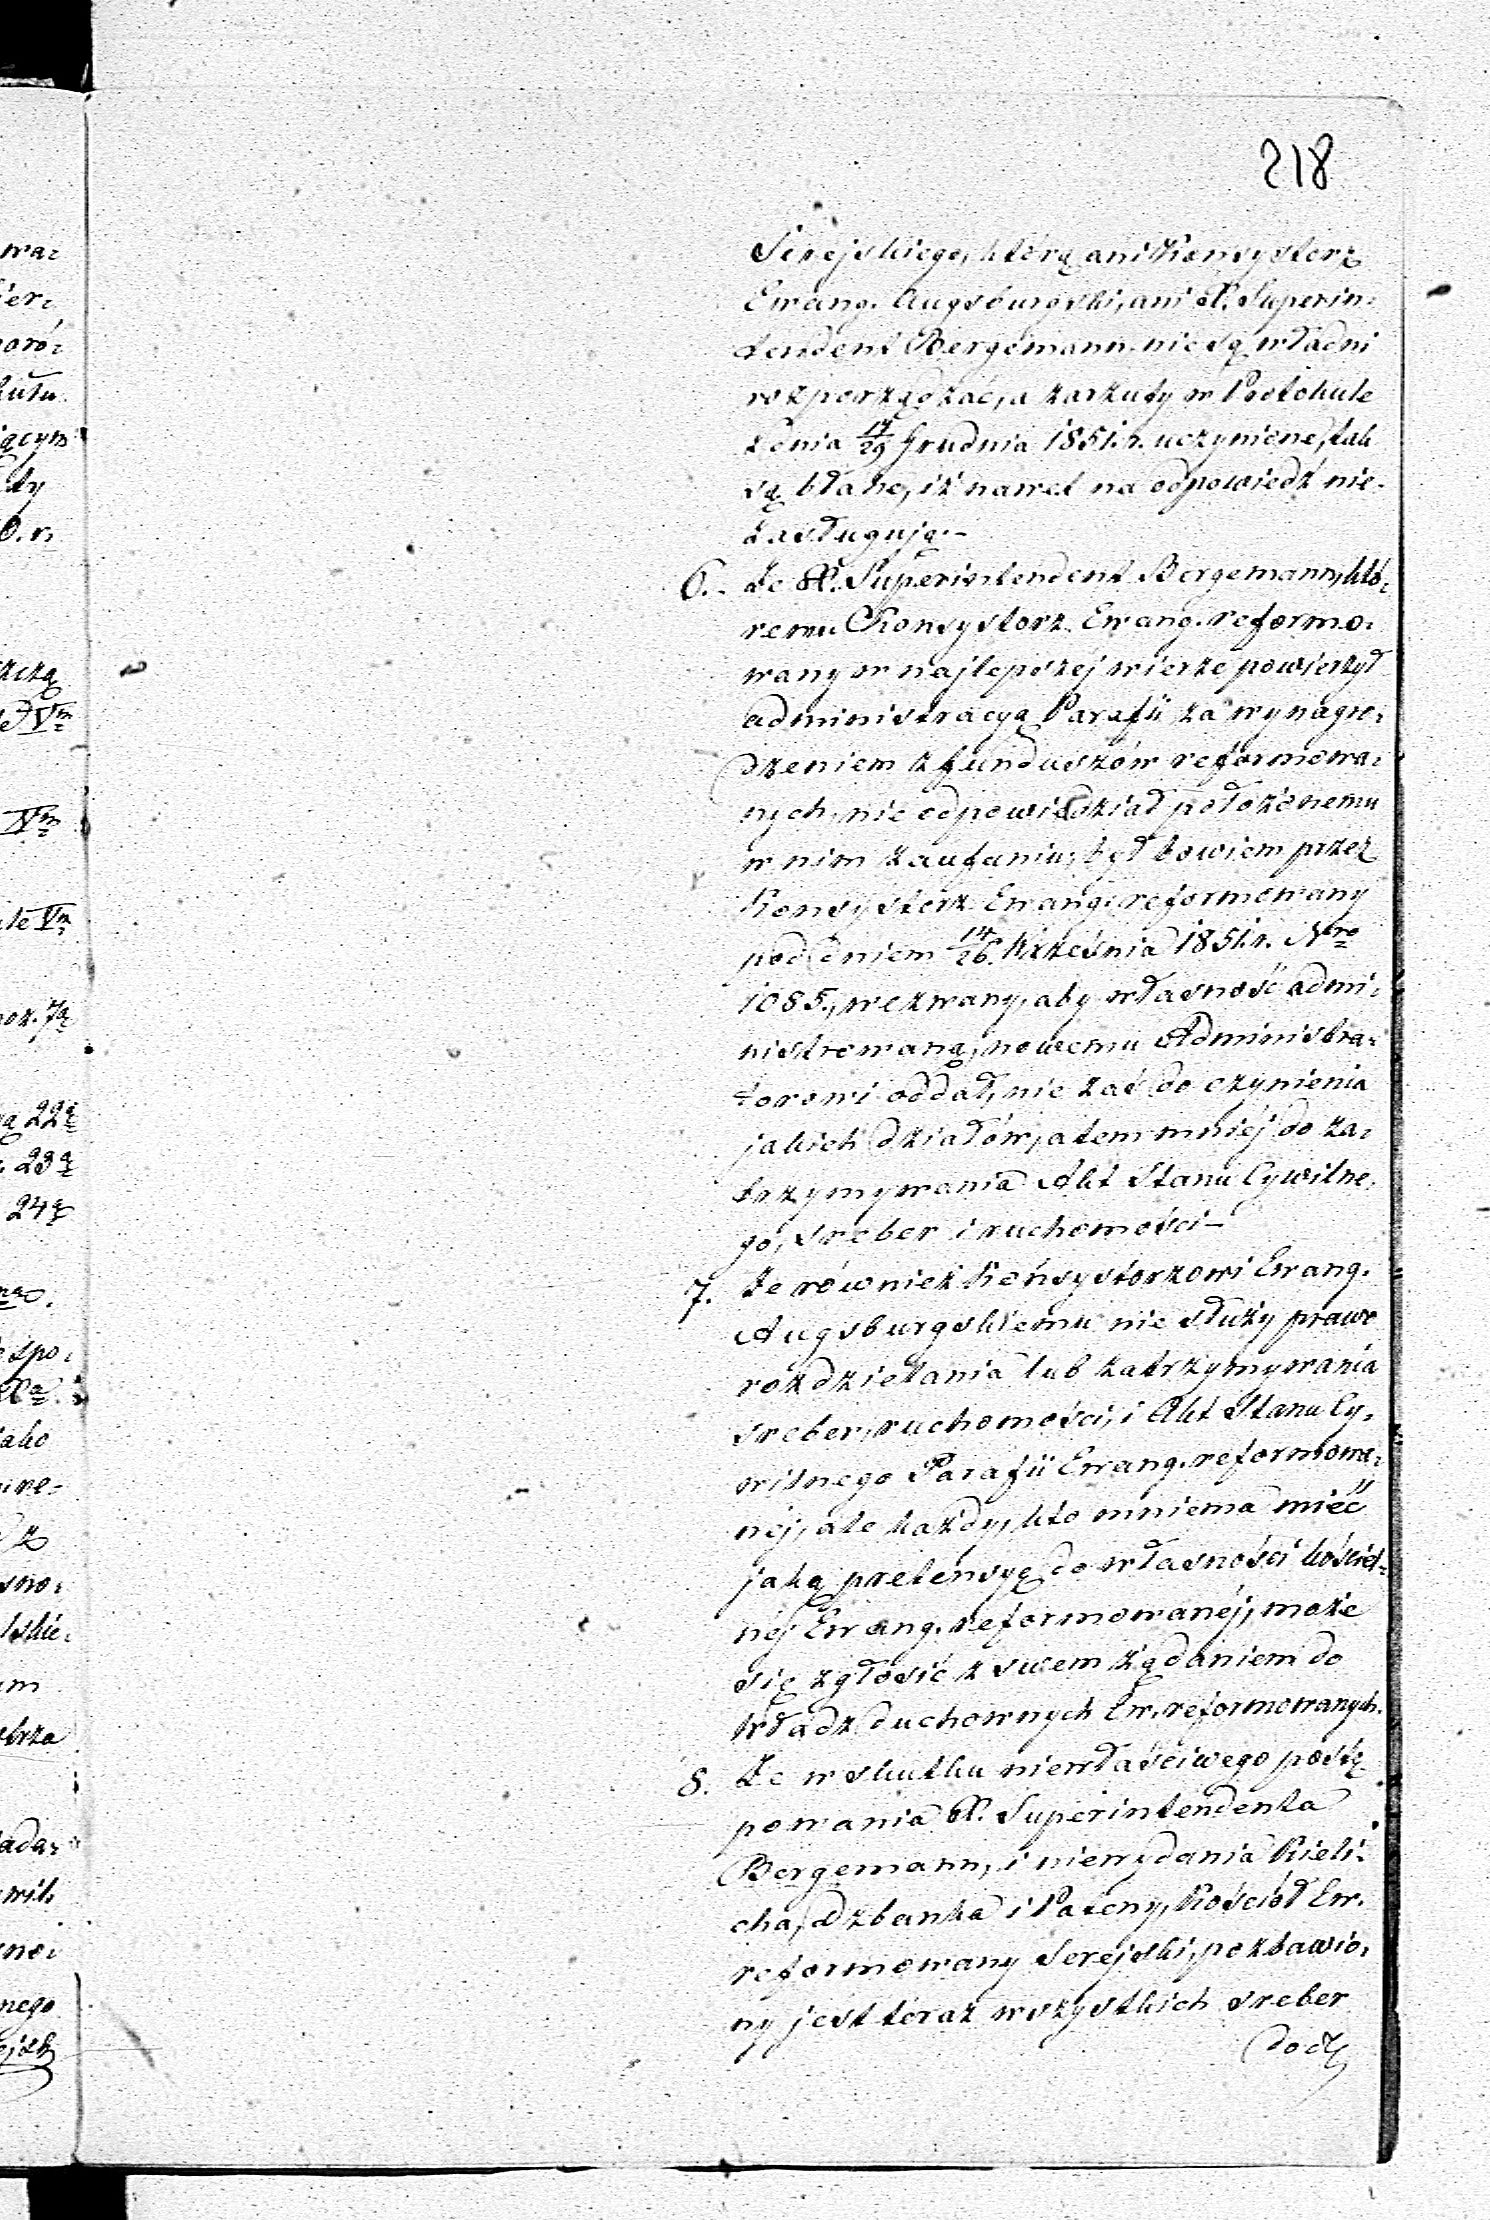 218
Serejskiego, którą ani Konsystorz
Ewang. Augsburgski, ani X. Superin=
tendent Bergemann nie są władni
rozporządzać, a zarzuty w Protokule
z dnia 17/29 Grudnia 1851. r. uczynione, tak
są błahe, iż nawet na odpowiedź nie
zasługują.-
6. Że X. Superintendent Bergemann, któ=
remu Konsystorz Ewang. reformo=
wany w najlepszéj wierze powierzył
administracyą Parafii za wynagro=
dzeniem z funduszów reformowa=
nych, nie odpowiedział położonemu
w nim zaufaniu, był bowiem przez
Konsystorz Ewang. reformowany
pod dniem 14/26. Września 1851. r. Nro
1085., wezwany, aby własność admi=
nistrowaną, nowemu Administra=
torowi oddał, nie zaś do czynienia
jakich działów, a tem mniéj do za=
trzymywania Akt Stanu Cywilne=
go, sreber i ruchomości -
7. Że również Konsystorzowi Ewang.
Augsburgskiemu nie służy prawo
rozdzielania lub zatrzymywania
sreber, ruchomości, i Akt Stanu Cy=
wilnego Parafii Ewang. reformowa=
néj, ale każdy, kto mniema mieć
jaką pretensyę do własności kościel=
néj Ewang. reformowanéj, może
się zgłosić z swem żądaniem do
Władz duchownych Ew. reformowanych.
8. Że w skutku niewłaściwego postę
powania X. Superintendenta
Bergemann, i niewydania Kieli=
cha, Dzbanka i Pateny, Kościół Ew.
reformowany Serejski, pozbawio=
ny jest teraz wszystkich sreber
do